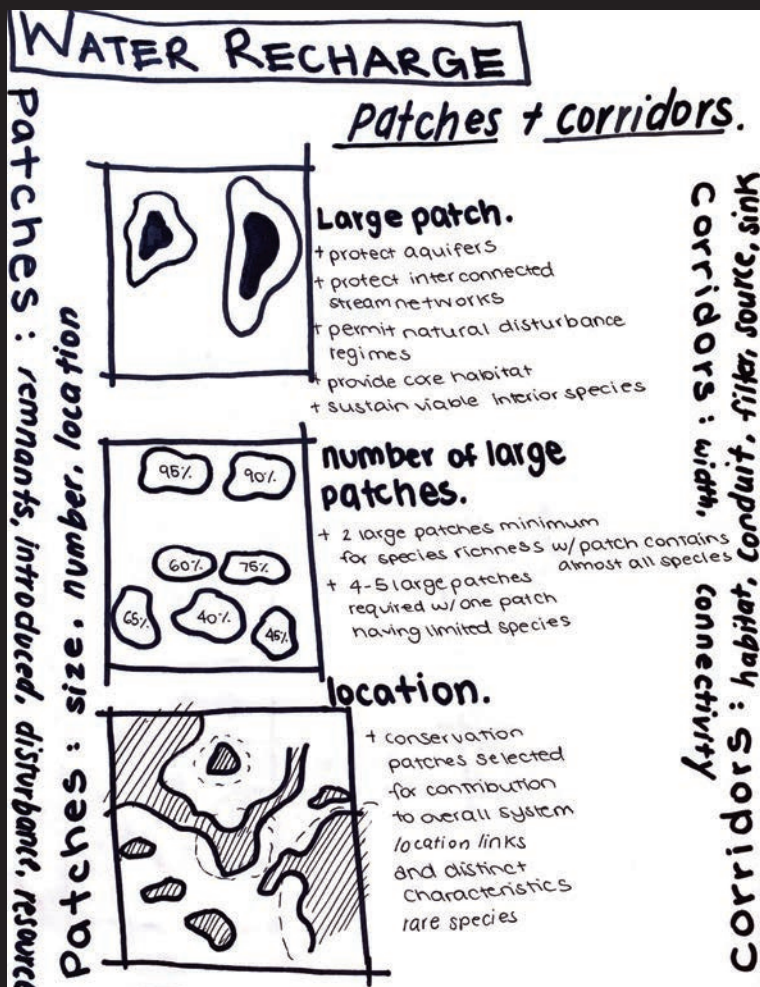 WATER RECHARGE
Patches + corridors.
Patches: remnants, introduced, disturbance, resource
Patches: size, number, location
Large patch.
+ protect aquifers
+ protect interconnected
stream networks
+ permit natural disturbance
regimes
+ provide core habitat
+ sustain viable interior species
number of large
patches.
+ 2 large patches minimum
for species richness w/patch contains
almost all species
+ 4-5 large patches
required w/one patch
having limited species
95%
90%
60%
75%
65%
40%
45%
location.
+ conservation
patches selected
for contribution
to overall system
location links
and distinct
characteristics
rare species
corridors: width, connectivity
corridors: habitat, conduit, filter, source, sink